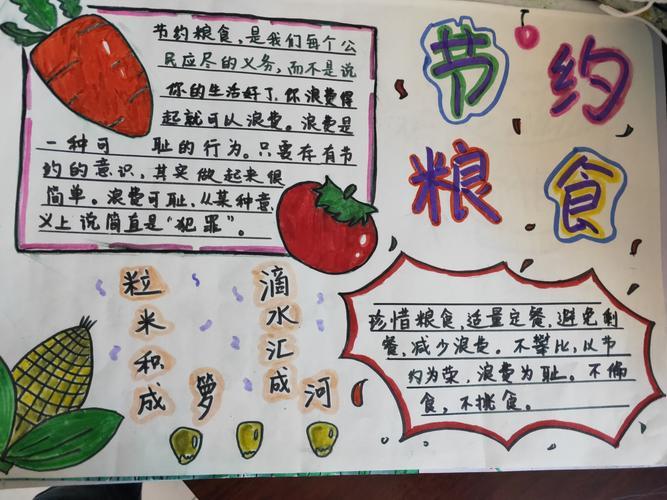 节约
粮食
节约粮食，是我们每个公
民应尽的义务，而不是说
你的生活好了，你浪费得
起就可以浪费。浪费是
一种可 耻的行为。只要存有节
约的意识，其实做起来很
简单。浪费可耻，从某种意
义上说简直是“犯罪”。
粒米积成箩
滴水汇成河
珍惜粮食，适量定餐，避免剩
餐，减少浪费。不攀比，以节
约为荣，浪费为耻。不偏
食，不挑食。